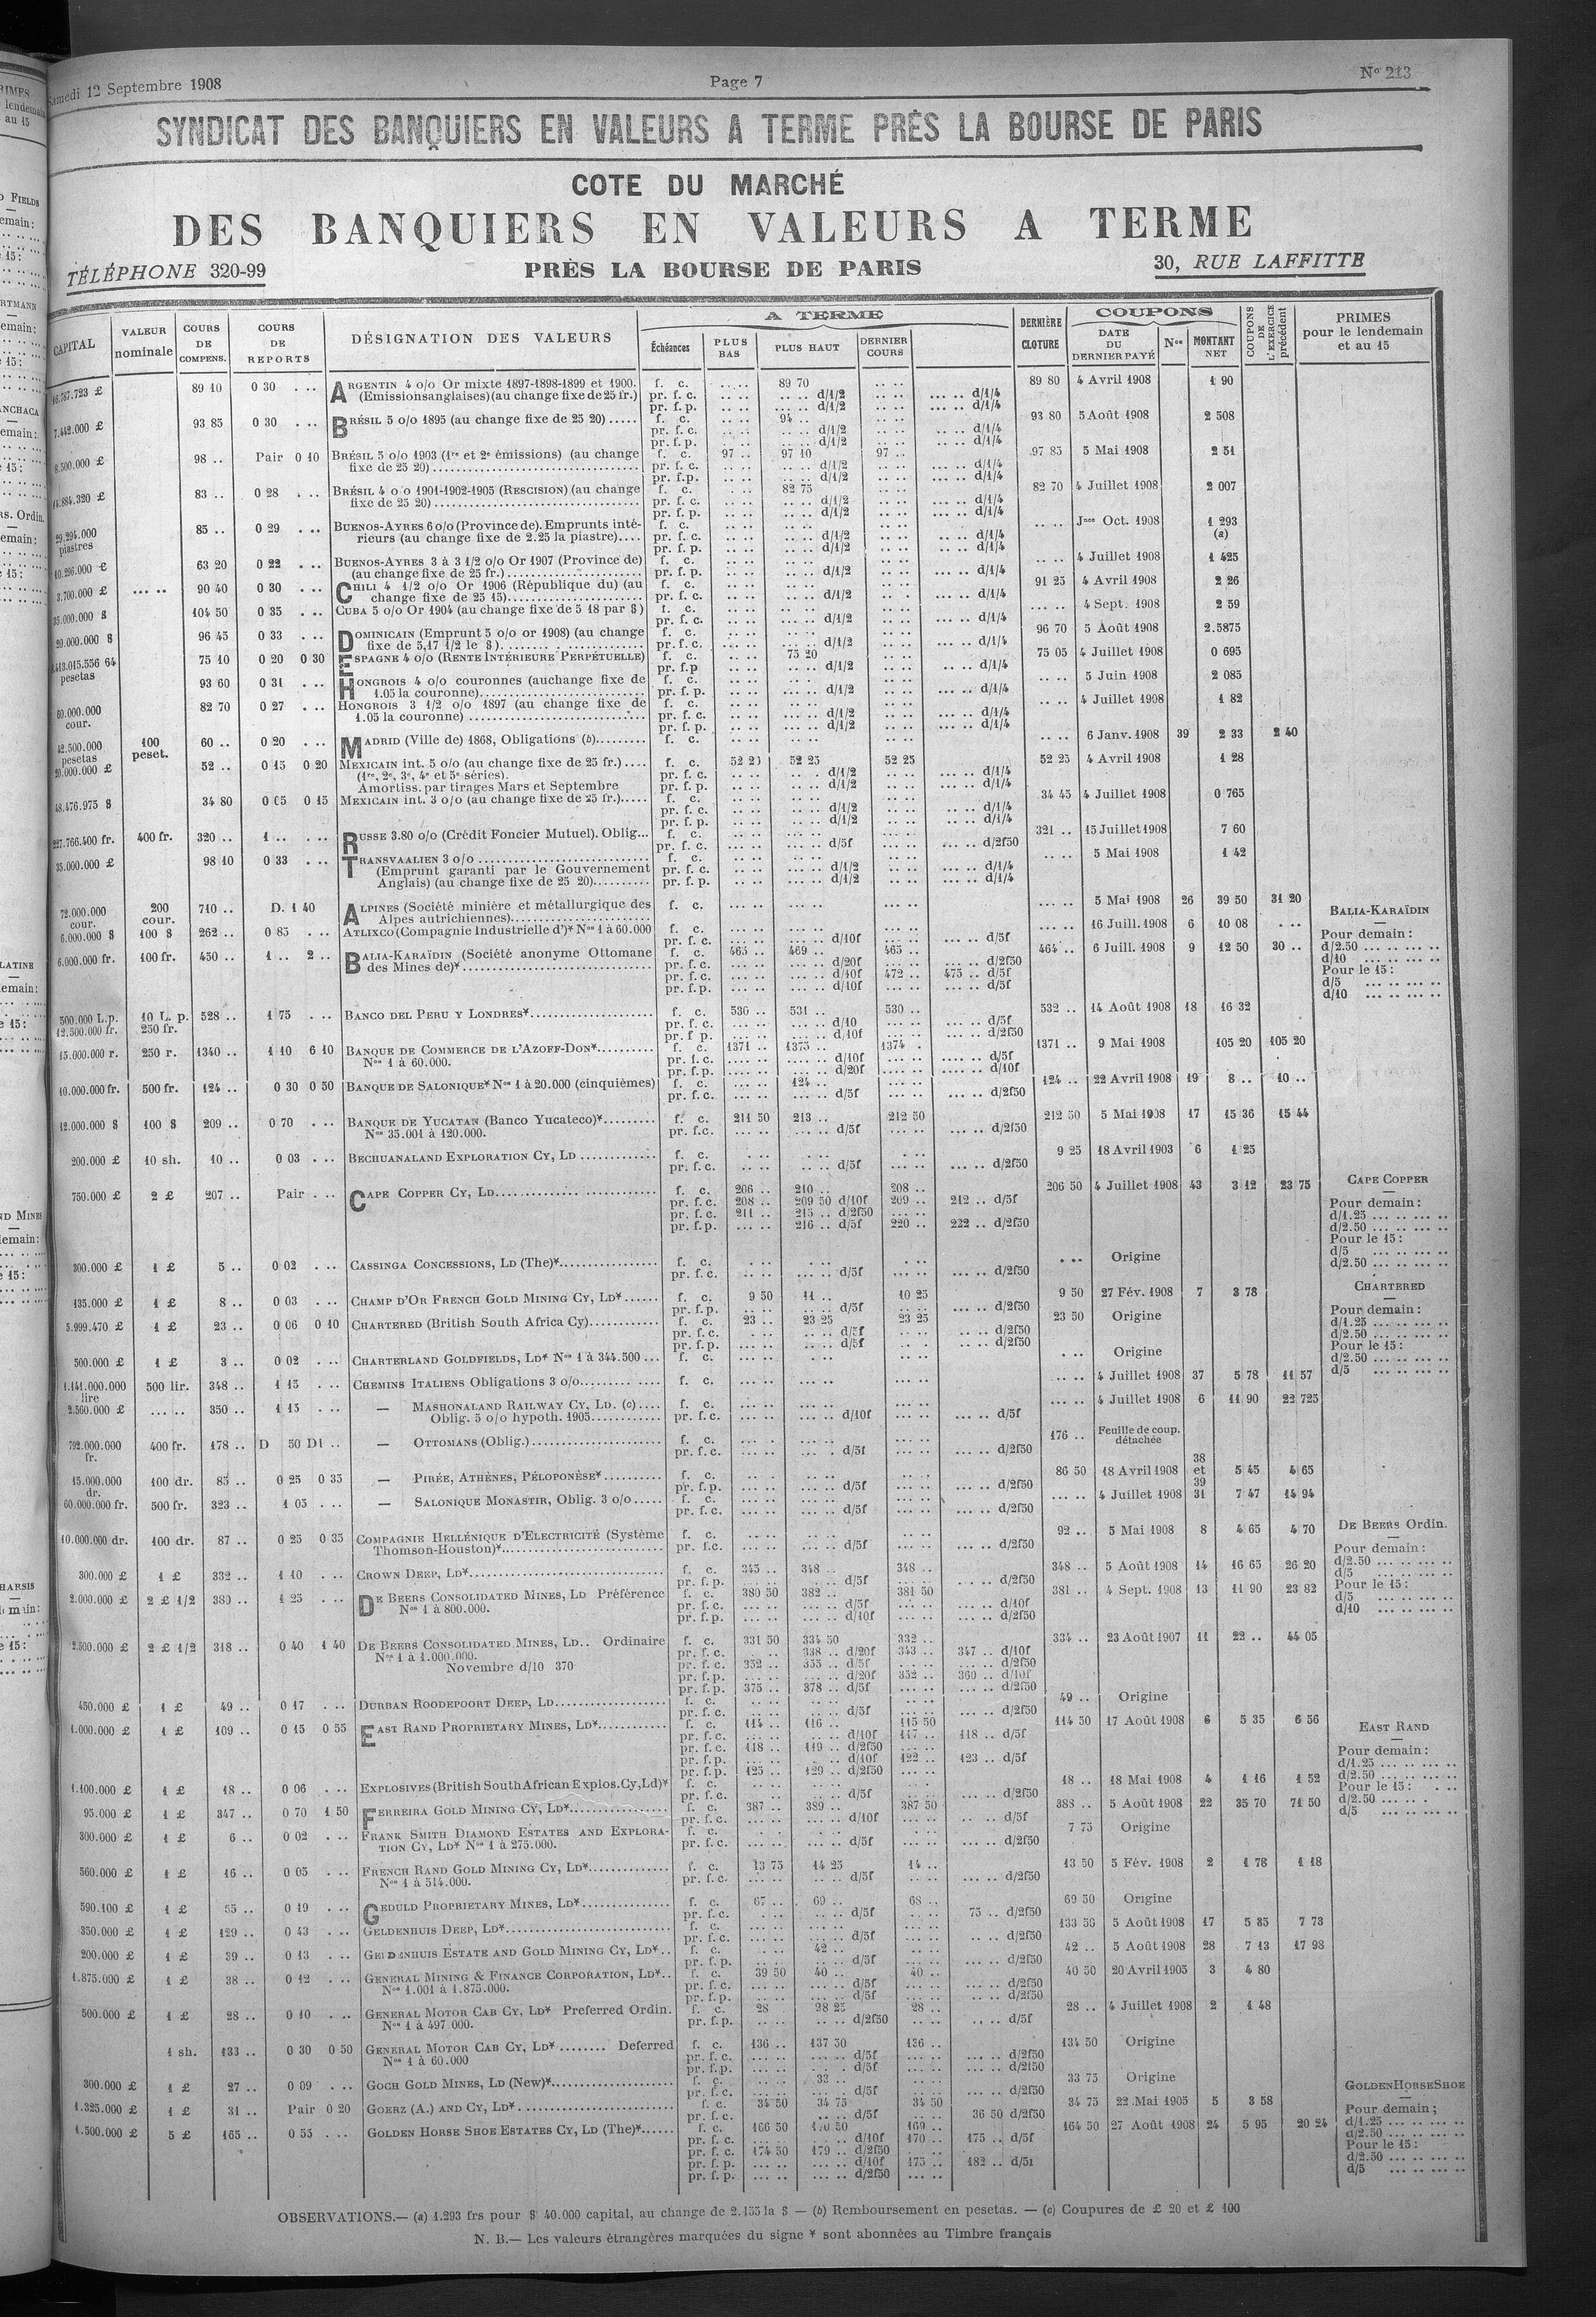 Samedi 12 Septembre 1908
Page 7
N° 213
SYNDICAT DES BANQUIERS EN VALEURS A TERME PRÈS LA BOURSE DE PARIS
COTE DU MARCHÉ
DES BANQUIERS EN VALEURS A TERME
TÉLÉPHONE 320-99
PRÈS LA BOURSE DE PARIS
30, RUE LAFFITTE
CAPITAL
VALEUR nominale
COURS DE COMPENS.
COURS DE REPORTS
DÉSIGNATION DES VALEURS
A TERME
Échéances
PLUS BAS
PLUS HAUT
DERNIER COURS
DERNIÈRE CLOTURE
COUPONS
DATE DU DERNIER PAYÉ
Nos
MONTANT NET
COUPONS DE L'EXERCICE précédent
PRIMES pour le lendemain et au 15
89 10 0 30 ARGENTIN 4 o/o Or mixte 1897-1898-1899 et 1900. f. c. 89 70 89 80 4 Avril 1908 1 90
(Emissions anglaises) (au change fixe de 25 fr.) pr. f. c. d/1/2 d/1/4
7.442.000 £ 93 85 0 30 BRÉSIL 5 o/o 1895 (au change fixe de 25 20) f. c. 94 .. 93 80 5 Août 1908 2 508
8.500.000 £ 98 .. Pair 0 10 BRÉSIL 5 o/o 1903 (1re et 2e émissions) (au change f. c. 97 .. 97 10 97 .. 97 85 5 Mai 1908 2 51
fixe de 25 20)
83 .. 0 28 BRÉSIL 4 o/o 1901-1902-1905 (RESCISION) (au change f. c. 82 75 82 70 4 Juillet 1908 2 007
fixe de 25 20)
29.294.000 piastres 85 .. 0 29 BUENOS-AYRES 6 o/o (Province de). Emprunts inté- f. c. Jnce Oct. 1908 1 293 (a)
rieurs (au change fixe de 2.25 la piastre)
10.296.000 £ 63 20 0 22 BUENOS-AYRES 3 à 3 1/2 o/o Or 1907 (Province de) f. c. 4 Juillet 1908 1 425
(au change fixe de 25 fr.)
3.700.000 £ 90 40 0 30 CHILI 4 1/2 o/o Or 1906 (République du) (au f. c. 91 25 4 Avril 1908 2 26
change fixe de 25 15)
35.000.000 $ 104 50 0 35 CUBA 5 o/o Or 1904 (au change fixe de 5 18 par $) f. c. 4 Sept. 1908 2 59
20.000.000 $ 96 45 0 33 DOMINICAIN (Emprunt 5 o/o or 1908) (au change f. c. 96 70 5 Août 1908 2.5875
fixe de 5,17 1/2 le $)
pesetas 75 10 0 20 0 30 ESPAGNE 4 o/o (RENTE INTÉRIEURE PERPÉTUELLE) f. c. 75 20 75 05 4 Juillet 1908 0 695
93 60 0 31 HONGROIS 4 o/o couronnes (au change fixe de f. c. 5 Juin 1908 2 085
1.05 la couronne)
60.000.000 cour. 82 70 0 27 HONGROIS 3 1/2 o/o 1897 (au change fixe de f. c. 4 Juillet 1908 1 82
1.05 la couronne)
42.500.000 pesetas 100 peset. 60 .. 0 20 MADRID (Ville de) 1868, Obligations (b) f. c. 6 Janv. 1908 39 2 33 2 40
20.000.000 £ 52 .. 0 15 0 20 MEXICAIN int. 5 o/o (au change fixe de 25 fr.) f. c. 52 20 52 25 52 25 52 25 4 Avril 1908 1 28
(1re, 2e, 3e, 4e et 5e séries).
Amortiss. par tirages Mars et Septembre
48.476.975 $ 34 80 0 05 0 15 MEXICAIN int. 3 o/o (au change fixe de 25 fr.) f. c. 34 45 4 Juillet 1908 0 765
227.766.400 fr. 400 fr. 320 .. 1 .. RUSSE 3.80 o/o (Crédit Foncier Mutuel). Oblig... f. c. 321 .. 15 Juillet 1908 7 60
35.000.000 £ 98 10 0 33 TRANSVAALIEN 3 o/o f. c. 5 Mai 1908 1 42
(Emprunt garanti par le Gouvernement
Anglais) (au change fixe de 25 20)
72.000.000 cour. 200 cour. 710 .. D. 1 40 ALPINES (Société minière et métallurgique des f. c. 5 Mai 1908 26 39 50 31 20
Alpes autrichiennes)
6.000.000 $ 100 $ 262 .. 0 85 ATLIXCO (Compagnie Industrielle d')* Nos 1 à 60.000 f. c. 16 Juill. 1908 6 10 08
6.000.000 fr. 100 fr. 450 .. 1 .. 2 .. BALIA-KARAÏDIN (Société anonyme Ottomane f. c. 465 .. 469 .. 465 .. 464 .. 6 Juill. 1908 9 12 50 30 ..
des Mines de)* pr. f. c. d/10f 472 .. 475 .. d/5f
500.000 L.p. 12.500.000 fr. 10 L. p. 250 fr. 528 .. 1 75 BANCO DEL PERU Y LONDRES* f. c. 530 .. 531 .. 530 .. 532 .. 14 Août 1908 18 16 32
15.000.000 r. 250 r. 1340 .. 1 10 6 10 BANQUE DE COMMERCE DE L'AZOFF-DON* f. c. 1371 .. 1375 .. 1374 . 1371 .. 9 Mai 1908 105 20 105 20
Nos 1 à 60.000.
10.000.000 fr. 500 fr. 124 .. 0 30 0 50 BANQUE DE SALONIQUE* Nos 1 à 20.000 (cinquièmes) f. c. 124 .. 124 .. 22 Avril 1908 19 8 .. 10 ..
12.000.000 $ 100 $ 209 .. 0 70 BANQUE DE YUCATAN (Banco Yucateco)* f. c. 211 50 213 .. 212 50 212 50 5 Mai 1908 17 15 36 15 44
Nos 35.001 à 120.000.
200.000 £ 10 sh. 10 .. 0 03 BECHUANALAND EXPLORATION CY, LD f. c. 9 25 18 Avril 1903 6 1 25
750.000 £ 2 £ 207 .. Pair CAPE COPPER CY, LD f. c. 206 .. 210 .. 208 .. 206 50 4 Juillet 1908 43 3 12 23 75
pr. f. c. 208 .. 209 50 d/10f 209 .. 212 .. d/5f
pr. f. c. 211 .. 215 .. d/2f50
pr. f. p. 216 .. d/5f 220 .. 222 .. d/2f50
300.000 £ 1 £ 5 .. 0 02 CASSINGA CONCESSIONS, LD (The)* f. c. Origine
135.000 £ 1 £ 8 .. 0 03 CHAMP D'OR FRENCH GOLD MINING CY, LD* f. c. 9 50 11 .. 10 25 9 50 27 Fév. 1908 7 3 78
5.999.470 £ 1 £ 23 .. 0 06 0 10 CHARTERED (British South Africa Cy) f. c. 23 .. 23 25 23 25 23 50 Origine
500.000 £ 1 £ 3 .. 0 02 CHARTERLAND GOLDFIELDS, LD* Nos 1 à 344.500 f. c. Origine
1.141.000.000 lire 500 lir. 348 .. 1 15 CHEMINS ITALIENS Obligations 3 o/o f. c. 4 Juillet 1908 37 5 78 11 57
2.560.000 £ 350 .. 1 15 — MASHONALAND RAILWAY CY, LD. (c) f. c. 4 Juillet 1908 6 11 90 22 725
Oblig. 5 o/o hypoth. 1905 pr. f. c. d/10f d/5f
792.000.000 fr. 400 fr. 178 .. D 50 D1 .. — OTTOMANS (Oblig.) f. c. 176 .. Feuille de coup. détachée
15.000.000 dr. 100 dr. 85 .. 0 25 0 35 — PIRÉE, ATHÈNES, PÉLOPONÈSE* f. c. 86 50 18 Avril 1908 38 et 39 5 45 4 65
60.000.000 fr. 500 fr. 323 .. 1 05 — SALONIQUE MONASTIR, Oblig. 3 o/o f. c. 4 Juillet 1908 31 7 47 14 94
10.000.000 dr. 100 dr. 87 .. 0 25 0 35 COMPAGNIE HELLÉNIQUE D'ELECTRICITÉ (Système f. c. 92 .. 5 Mai 1908 8 4 65 4 70
Thomson-Houston)*
300.000 £ 1 £ 332 .. 1 10 CROWN DEEP, LD* f. c. 345 .. 348 .. 348 .. 348 .. 5 Août 1908 14 16 65 26 20
2.000.000 £ 2 £ 1/2 380 .. 1 25 DE BEERS CONSOLIDATED MINES, LD Préférence f. c. 380 50 382 .. 381 50 381 .. 4 Sept. 1908 13 11 90 23 82
Nos 1 à 800.000.
2.500.000 £ 2 £ 1/2 318 .. 0 40 1 40 DE BEERS CONSOLIDATED MINES, LD.. Ordinaire f. c. 331 50 334 50 332 .. 334 .. 23 Août 1907 11 22 .. 44 05
Nos 1 à 1.000.000. pr. f. c. 338 .. d/20f 343 .. 347 .. d/10f
Novembre d/10 370 pr. f. c. 352 .. 355 .. d/5f d/2f50
pr. f. p. d/20f 352 .. 360 .. d/10f
pr. f. p. 375 .. 378 .. d/5f d/2f50
450.000 £ 1 £ 49 .. 0 17 DURBAN ROODEPOORT DEEP, LD f. c. 49 .. Origine
1.000.000 £ 1 £ 109 .. 0 15 0 55 EAST RAND PROPRIETARY MINES, LD* f. c. 114 .. 116 .. 115 50 114 50 17 Août 1908 6 5 35 6 56
pr. f. c. d/10f 117 .. 118 .. d/5f
pr. f. c. 118 .. 119 .. d/2f50
pr. f. p. d/10f 122 .. 123 .. d/5f
pr. f. p. 125 .. 129 .. d/2f50
1.100.000 £ 1 £ 18 .. 0 06 EXPLOSIVES (British South African Explos. Cy, Ld)* f. c. 18 .. 18 Mai 1908 4 1 16 1 52
95.000 £ 1 £ 347 .. 0 70 1 50 FERREIRA GOLD MINING CY, LD* f. c. 387 .. 389 .. 387 50 388 .. 5 Août 1908 22 35 70 71 50
300.000 £ 1 £ 6 .. 0 02 FRANK SMITH DIAMOND ESTATES AND EXPLORA- f. c. 7 75 Origine
TION CY, LD* Nos 1 à 275.000.
560.000 £ 1 £ 16 .. 0 05 FRENCH RAND GOLD MINING CY, LD* f. c. 13 75 14 25 14 .. 13 50 5 Fév. 1908 2 1 78 1 18
Nos 1 à 514.000.
590.100 £ 1 £ 55 .. 0 19 GEDULD PROPRIETARY MINES, LD* f. c. 67 .. 69 .. 68 .. 69 50 Origine
pr. f. c. d/5f 75 .. d/2f50
350.000 £ 1 £ 129 .. 0 43 GELDENHUIS DEEP, LD* f. c. 133 50 5 Août 1908 17 5 85 7 73
200.000 £ 1 £ 39 .. 0 13 GELDENHUIS ESTATE AND GOLD MINING CY, LD* f. c. 42 .. 42 .. 5 Août 1908 28 7 13 17 98
1.875.000 £ 1 £ 38 .. 0 12 GENERAL MINING & FINANCE CORPORATION, LD* f. c. 39 50 40 .. 40 .. 40 50 20 Avril 1905 3 4 80
Nos 1.001 à 1.875.000.
500.000 £ 1 £ 28 .. 0 10 GENERAL MOTOR CAB CY, LD* Preferred Ordin. f. c. 28 98 25 28 .. 28 .. 4 Juillet 1908 2 1 48
Nos 1 à 497.000.
1 sh. 133 .. 0 30 0 50 GENERAL MOTOR CAB CY, LD* Deferred f. c. 136 .. 137 50 136 .. 134 50 Origine
Nos 1 à 60.000
300.000 £ 1 £ 27 .. 0 09 GOCH GOLD MINES, LD (New)* f. c. 33 .. 33 75 Origine
1.325.000 £ 1 £ 31 .. Pair 0 20 GOERZ (A.) AND CY, LD* f. c. 34 50 34 75 34 50 34 75 22 Mai 1905 5 3 58
pr. f. c. d/5f 36 50 d/2f50
1.500.000 £ 5 £ 165 .. 0 55 GOLDEN HORSE SHOE ESTATES CY, LD (The)* f. c. 166 50 170 50 169 .. 164 50 27 Août 1908 24 5 95 20 24
pr. f. c. d/10f 170 .. 175 .. d/5f
pr. f. c. 174 50 179 .. d/2f50
pr. f. p. d/10f 175 .. 182 .. d/5f
pr. f. p. d/2f50
BALIA-KARAÏDIN
Pour demain :
d/2.50
d/10
Pour le 15 :
d/5
d/10
CAPE COPPER
Pour demain :
d/1.25
d/2.50
Pour le 15 :
d/5
d/2.50
CHARTERED
Pour demain :
d/1.25
d/2.50
Pour le 15 :
d/2.50
d/5
DE BEERS Ordin.
Pour demain :
d/2.50
d/5
Pour le 15 :
d/5
d/10
EAST RAND
Pour demain :
d/1.25
d/2.50
Pour le 15 :
d/2.50
d/5
GOLDEN HORSE SHOE
Pour demain ;
d/1.25
d/2.50
Pour le 15 :
d/2.50
d/5
OBSERVATIONS.— (a) 1.293 frs pour $ 40.000 capital, au change de 2.155 la $ — (b) Remboursement en pesetas. — (c) Coupures de £ 20 et £ 100
N. B.— Les valeurs étrangères marquées du signe * sont abonnées au Timbre français